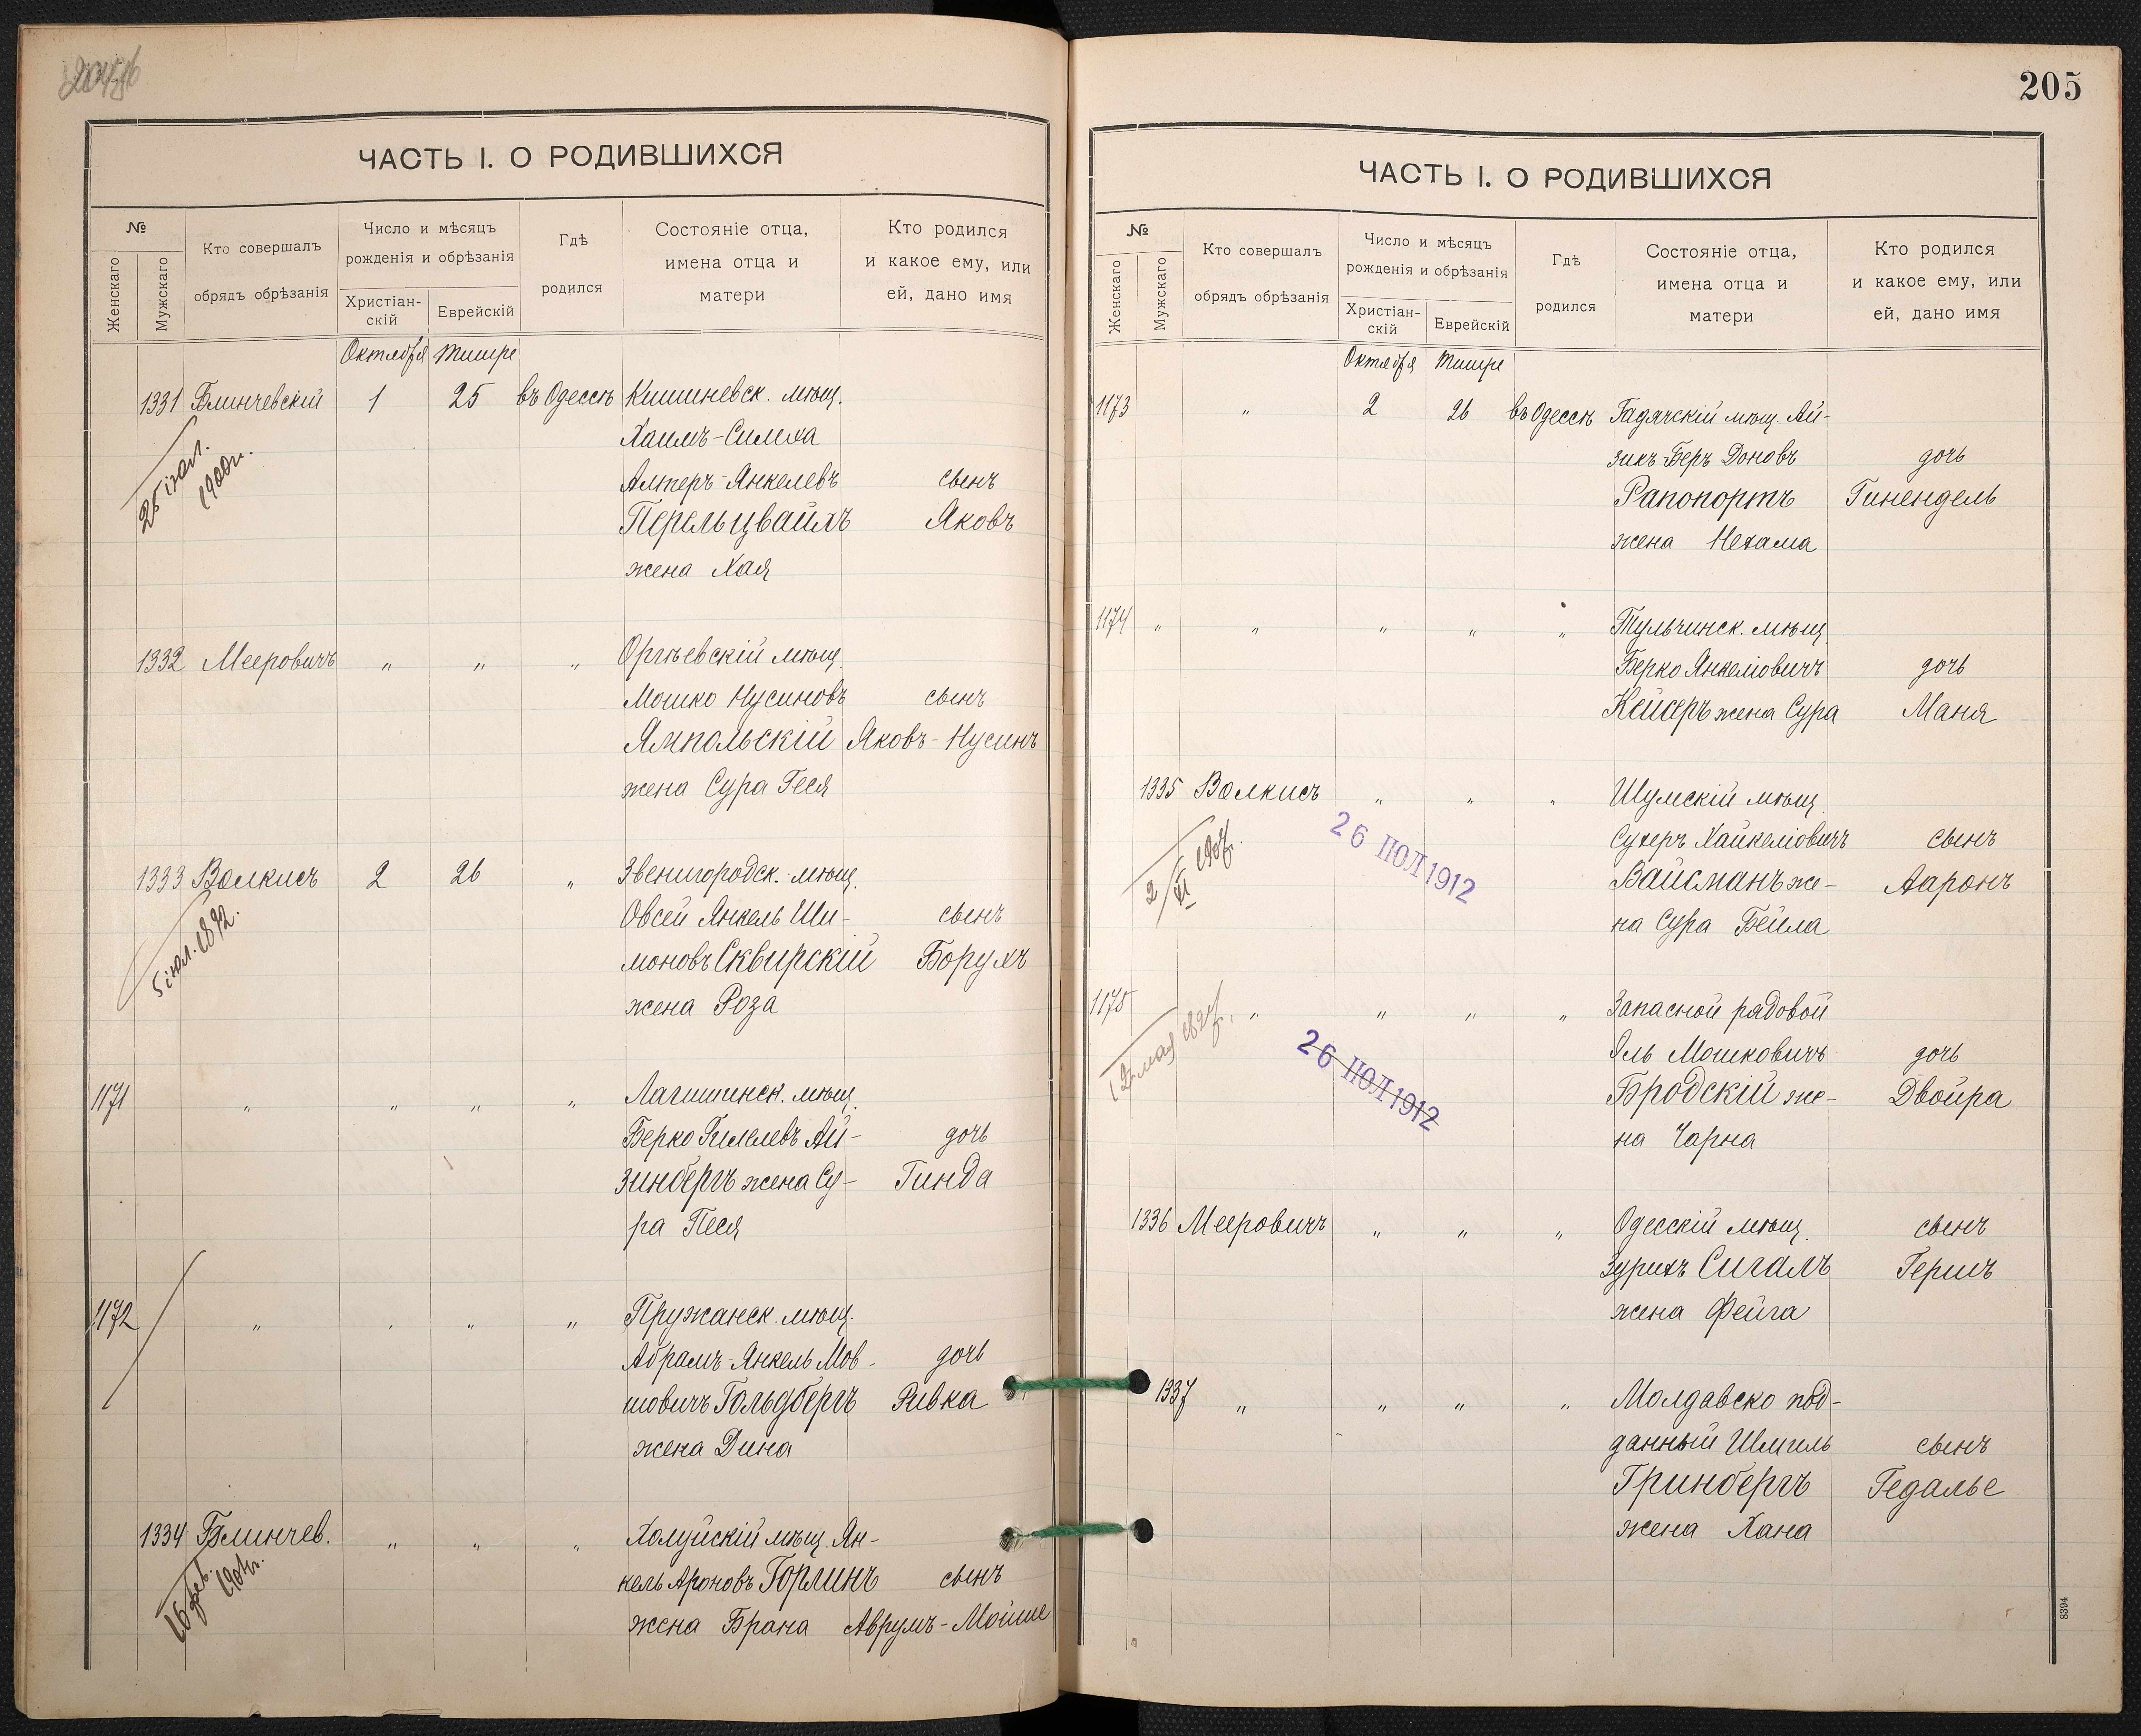 ЧАСТЬ I. О РОДИВШИХСЯ
№
Женскаго
Мужскаго
Кто совершалъ
обрядъ обрѣзанія
Число и мѣсяцъ
рожденія и обрѣзанія
Христіан-
скій
Еврейскій
Гдѣ
родился
Состояніе отца,
имена отца и
матери
Кто родился
и какое ему, или
ей, дано имя
Октября Тишре
1331 Блинчевскій 1 25 въ Одессѣ Кишиневск. мѣщ.
Хаимъ-Симха
Алтеръ-Янкелевъ сынъ
Перельцвайгъ Яковъ
жена Хая
25 іюл.
1900г.
1332 Мееровичъ " " " Оргѣевскій мѣщ.
Мошко Нусиновъ сынъ
Ямпольскій Яковъ-Нусинъ
жена Сура Геся
1333 Волкисъ 2 26 " Звенигородск. мѣщ.
Овсей Янкель Ши- сынъ
моновъ Сквирскій Борухъ
жена Роза
5 іюл. 1892.
1171 " " " " Логишинск. мѣщ.
Берко Гилелевъ Ай- дочь
зинбергъ жена Су- Гинда
ра Песя
1172 " " " " Пружанск. мѣщ.
Абрамъ-Янкель Мов-
дочь
шовичъ Гольдбергъ Ривка
жена Дина
1334 Блинчев. " " " Холуйскій мѣщ. Ян-
кель Ароновъ Горлинъ сынъ
жена Брана Аврумъ-Мойше
16 фев.
205
ЧАСТЬ I. О РОДИВШИХСЯ
№
Женскаго
Мужскаго
Кто совершалъ
обрядъ обрѣзанія
Число и мѣсяцъ
рожденія и обрѣзанія
Христіан-
скій
Еврейскій
Гдѣ
родился
Состояніе отца,
имена отца и
матери
Кто родился
и какое ему, или
ей, дано имя
Октября Тишре
1173 " 2 26 въ Одессѣ Гадячскій мѣщ. Ай-
зикъ-Беръ Доновъ дочь
Рапопортъ Гинендель
жена Нехама
1174 " " " " " Тульчинск. мѣщ.
Берко Янкеліовичъ дочь
Кейсеръ жена Сура Маня
1335 Волкисъ " " " Шумскій мѣщ.
Сухеръ Хайкеліовичъ сынъ
Вайсманъ же- Ааронъ
на Сура Бейла
26 ІЮЛ 1912
1175 " " " " Запасной рядовой
Іль Мошковичъ дочь
Бродскій же- Двойра
на Чарна
12 мая
26 ІЮЛ 1912
1336 Мееровичъ " " " Одесскій мѣщ. сынъ
Зурихъ Сигалъ Гершъ
жена Фейга
1337 " " " " Молдавско под-
данный Шмиль сынъ
Гринбергъ Гедалье
жена Хана
8394